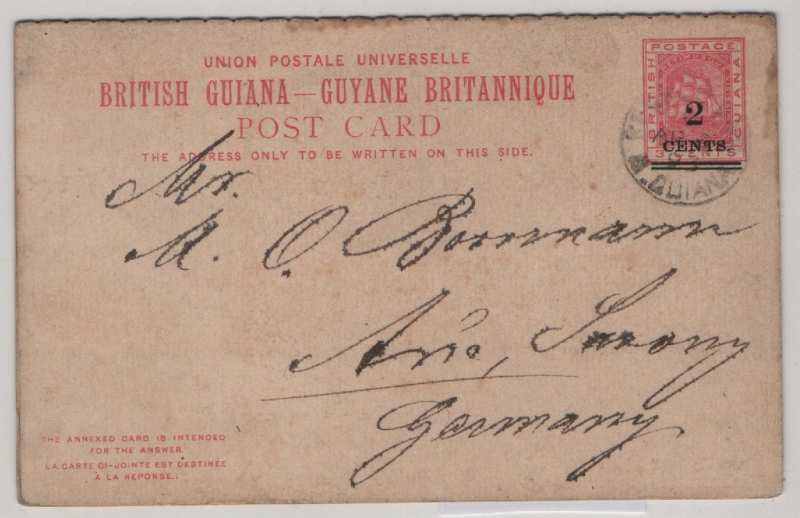 UNION POSTALE UNIVERSELLE
BRITISH GUIANA—GUYANE BRITANNIQUE
POST CARD
THE ADDRESS ONLY TO BE WRITTEN ON THIS SIDE.
POSTAGE
BRITISH
GUIANA
2
CENTS.
3 CENTS
GUIANA
Mr.
M. O. Bornmann
Germany
THE ANNEXED CARD IS INTENDED
FOR THE ANSWER.
LA CARTE CI-JOINTE EST DESTINÉE
À LA REPONSE.